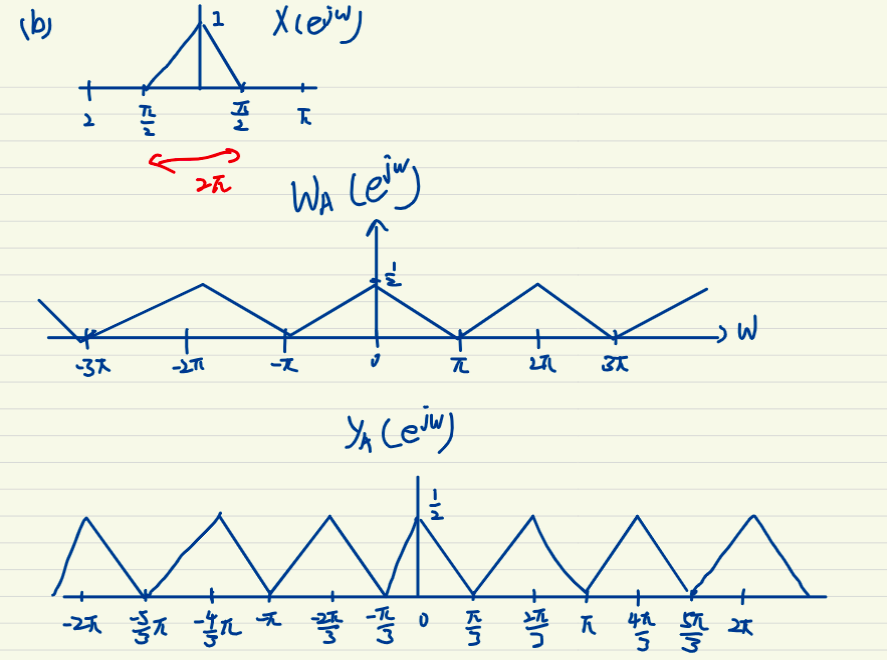 (b) 1 X(e^{jω})
2 π/2 π/2 π
2π
W_A(e^{jω})
1/2
ω
-3π -2π -π 0 π 2π 3π
Y_A(e^{jω})
1/2
-2π -5/3 π -4/3 π -π -2π/3 -π/3 0 π/3 2π/3 π 4π/3 5π/3 2π